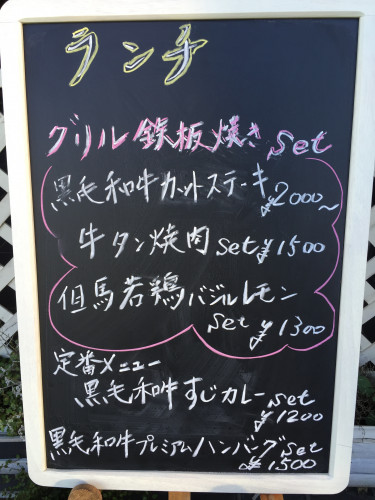 ランチ
グリル鉄板焼きset
黒毛和牛カットステーキ¥2000~
牛タン焼肉set¥1500
但馬若鶏バジルレモン
set ¥1300
定番メニュー
黒毛和牛すじカレーset
¥1200
黒毛和牛プレミアムハンバーグset
¥1500